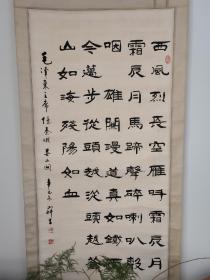 西風烈長空雁叫霜辰月
霜辰月馬蹄聲碎喇叭聲
咽雄關漫道真如鐵而
今邁步從頭越從頭越蒼
山如海殘陽如血
毛澤東主席憶秦娥婁山關